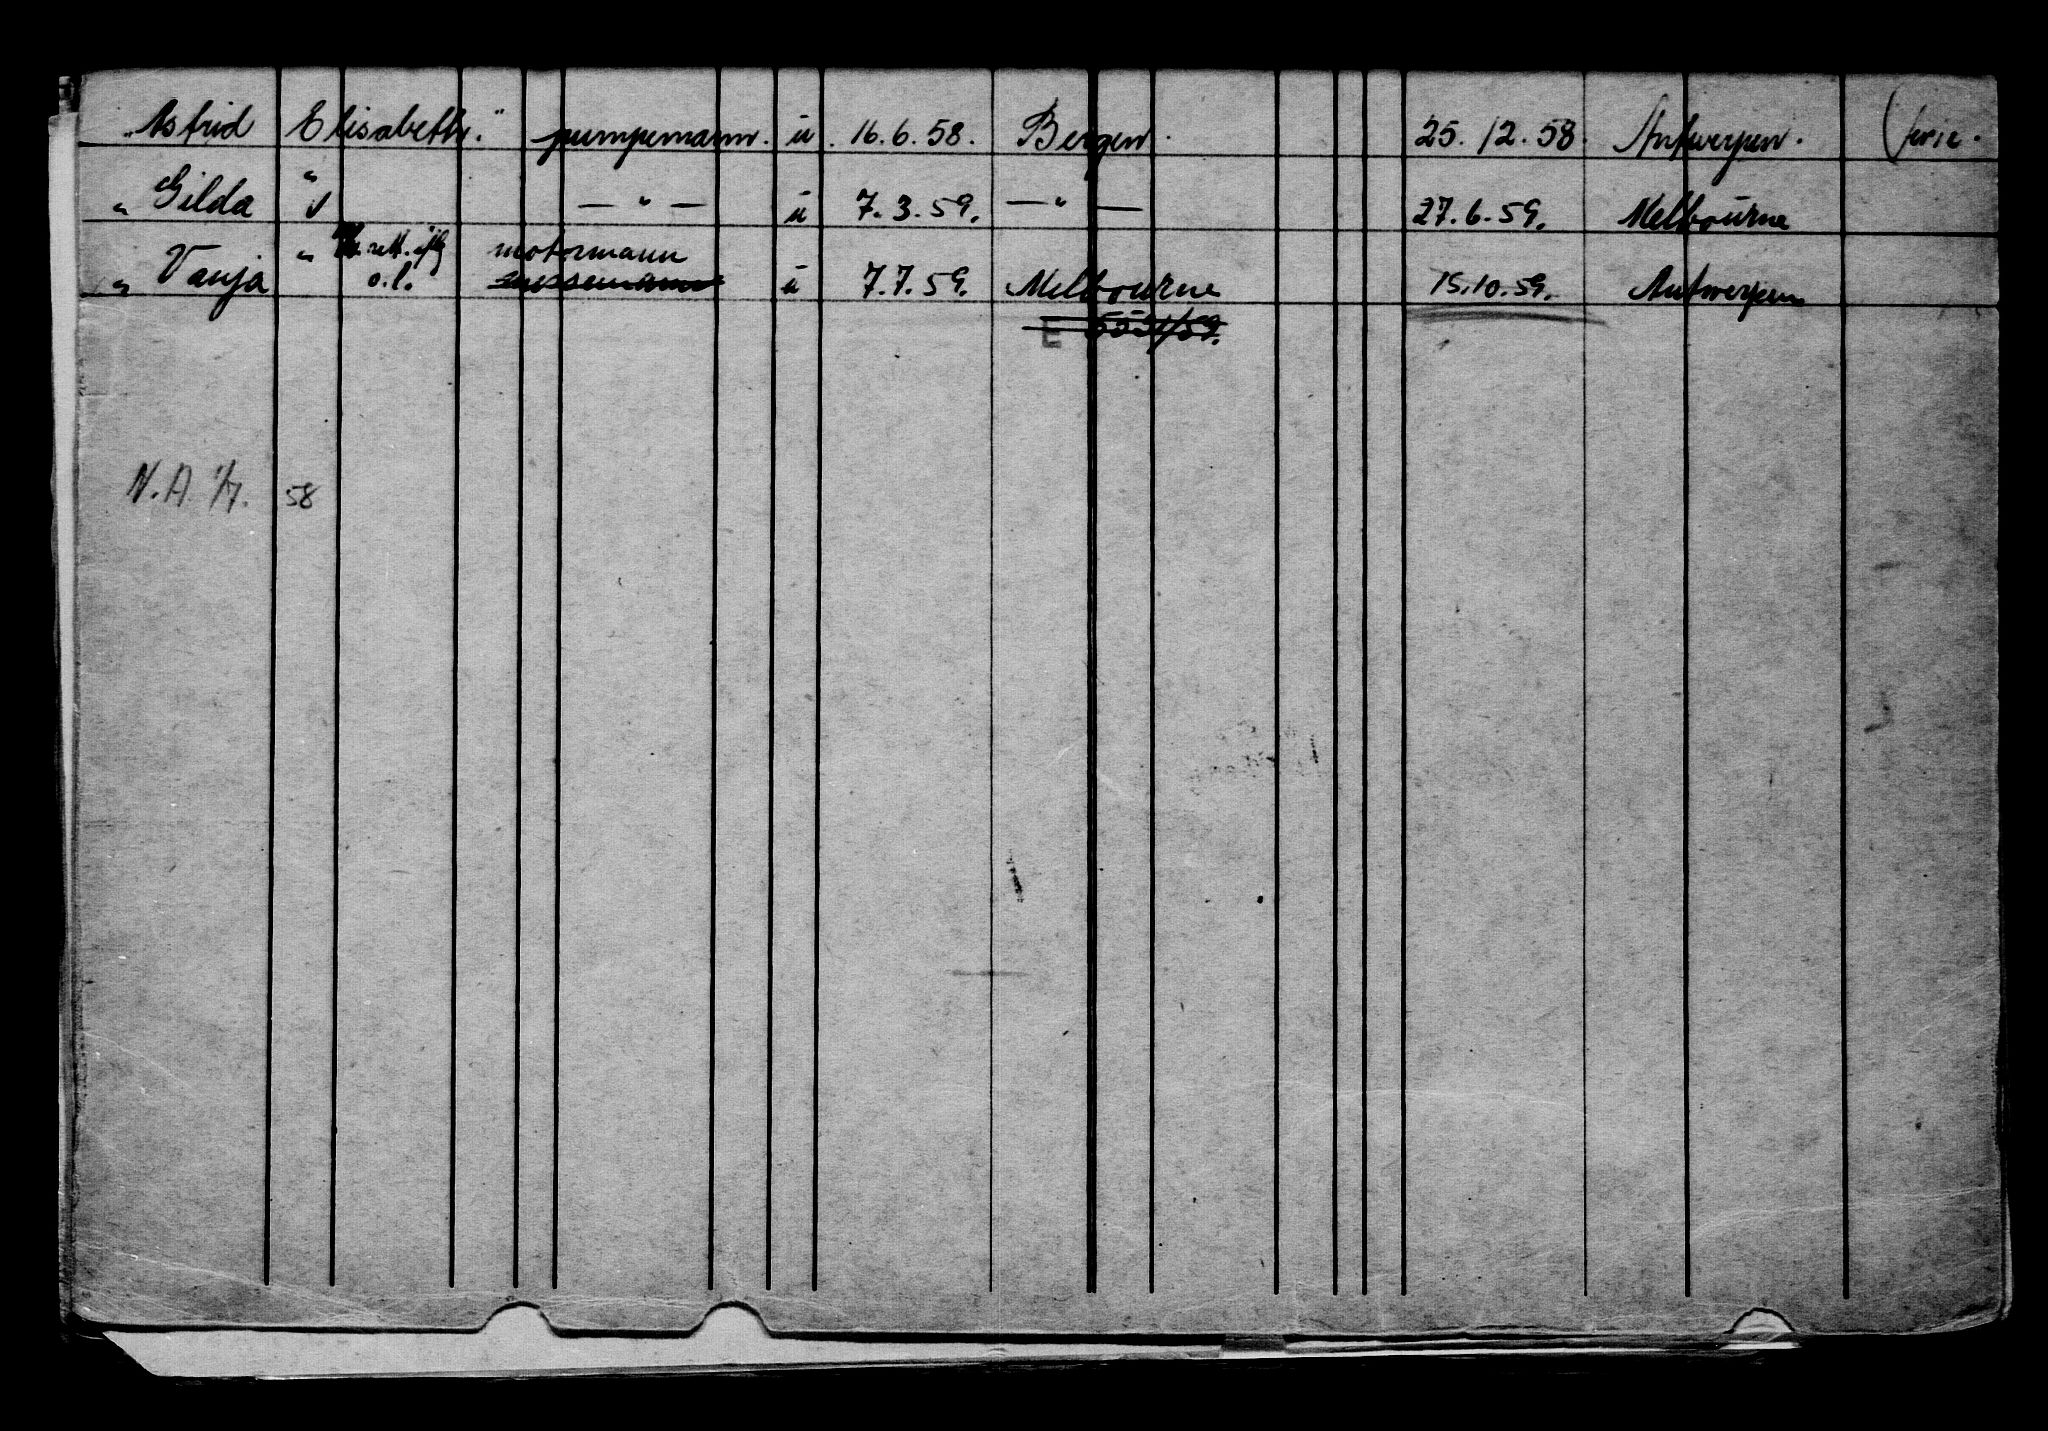 "Astrid Elisabeth." pumpemann. u. 16.6.58. Bergen. 25.12.58. Antwerpen. (ferie.
" Gilda " — " — u 7.3.59. — " — 27.6.59. Melbourne
" Vanja " motormann
o.l. u 7.7.59. Melbourne 15.10.59. Antwerpen
N.A. 1/7. 58